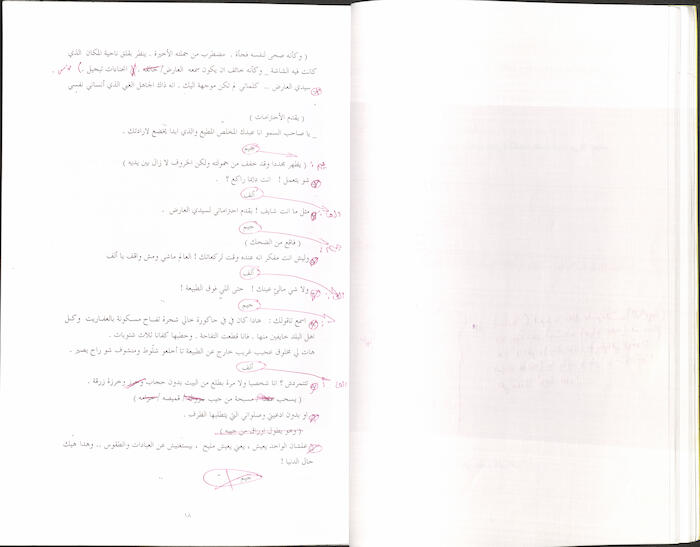 ( وكأنه صحى لنفسه فجأة . مضطرب من جملته الأخيرة .. ينظر بقلق ناحية المكان الذي
كانت فيه الشاشة _ وكأنه خائف ان يكون سمعه العارض / . انحناءات تبجيل .. )
سيدي العارض .. كلماتي لم تكن موجهة اليك . انه ذاك الجاهل الغبي الذي أنساني نفسي
.
( يقدم الأحترامات )
_ يا صاحب السمو انا عبدك المخلص المطيع والذي ابدا يخضع لارادتك .
جيم
( يظهر مجددا وقد خفف من حمولته ولكن الخروف لا زال بين يديه )
شو بتعمل ! انت دايما راكع ؟ .
ألف
مثل ما انت شايف ! بقدم احتراماتي لسيدي العارض .
جيم
( فاقع من الضحك )
وليش انت مفكر انه عنده وقت لركعاتك ! العالم ماشي ومش واقف يا ألف
ألف
ولا شي مالئ عينك ! حتى اللي فوق الطبيعة !
جيم
اسمع تاقولك : هاذا كان في في حاكورة خالي شجرة تفاح مسكونة بالعفاريت وكل
اهل البلد خايفين منها . فانا قطعت التفاحة . وحطبها كفانا ثلاث شتويات .
هات لي مخلوق عجيب غريب خارج عن الطبيعة تا أخلعو شلوط ومنشوف شو راح يصير .
ألف
تتمردش ؟ انا شخصيا ولا مرة بطلع من البيت بدون حجاب وخرزة زرقة .
( يسحب مسبحة من جيب / قميصه / )
او بدون ادعيتي وصلواتي التي يتطلبها الظرف .
( وهو يطول اوراق من جيبه )
علشان الواحد يعيش ، يعني يعيش مليح ، بيستغنيش عن العبادات والطقوس .. وهذا هيك
حال الدنيا !
جيم
١٨